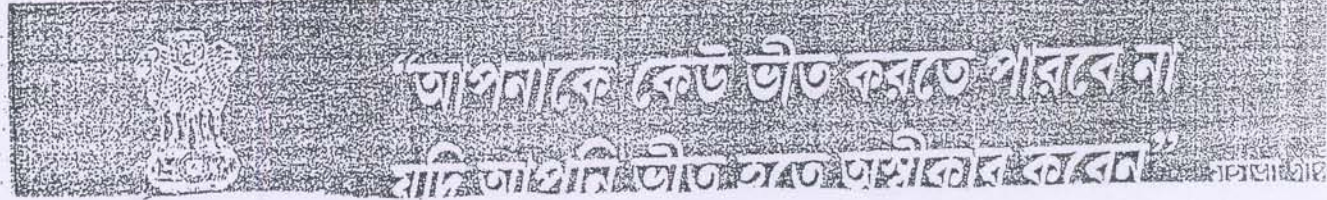 “আপনাকে কেউ ভীত করতে পারবে না
যদি আপনি ভীত হতে অস্বীকার করেন”